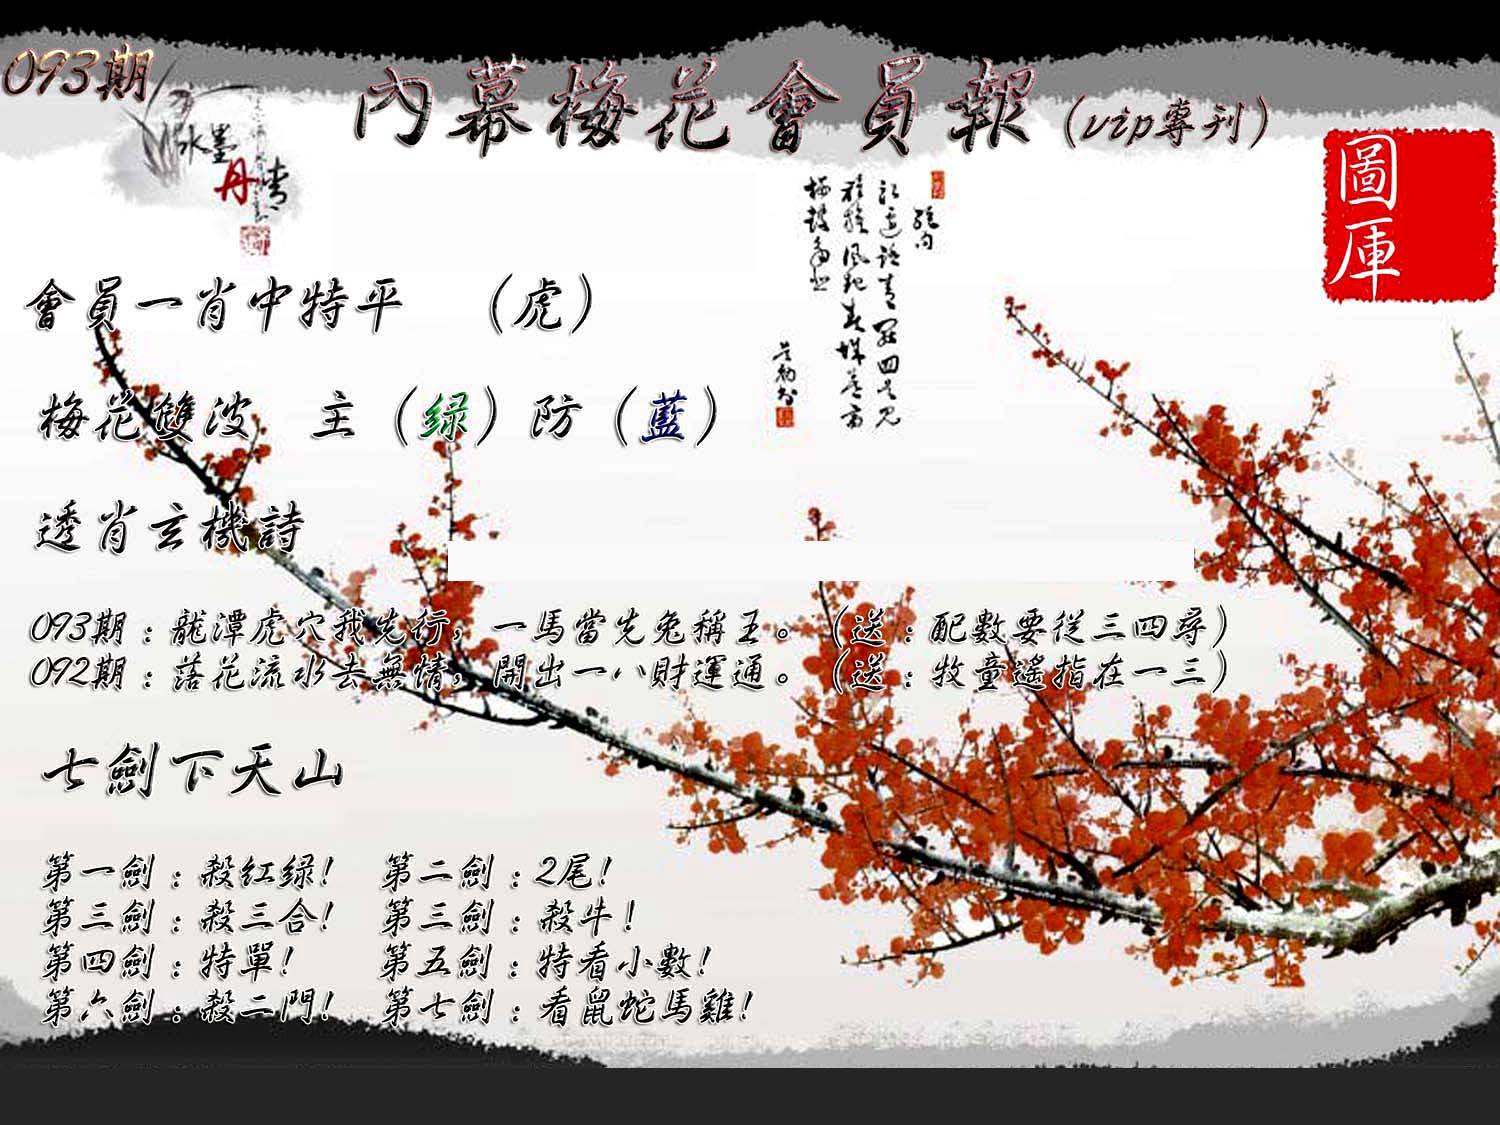 093期
內幕梅花會員報(vip專刊)
水墨
丹青
圖庫
會員一肖中特平 （虎）
梅花雙波 主（绿）防（藍）
透肖玄機詩
093期：龍潭虎穴我先行，一馬當先兔稱王。（送：配數要從三四尋）
092期：落花流水去無情，開出一八財運通。（送：牧童遙指在一三）
七劍下天山
第一劍：殺紅绿！ 第二劍：2尾！
第三劍：殺三合！ 第三劍：殺牛！
第四劍：特單！ 第五劍：特看小數！
第六劍：殺二門！ 第七劍：看鼠蛇馬雞！